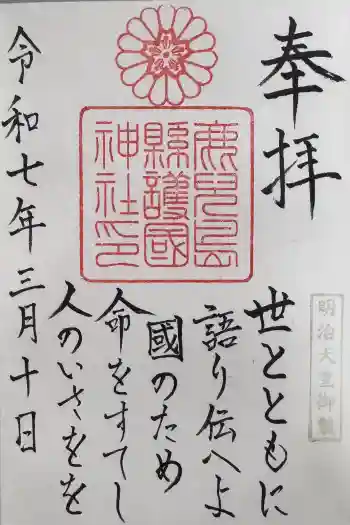 奉拝
鹿児島
縣護國
神社印
明治天皇御製
世とともに
語り伝へよ
國のため
命をすてし
人のいさをを
令和七年三月十日